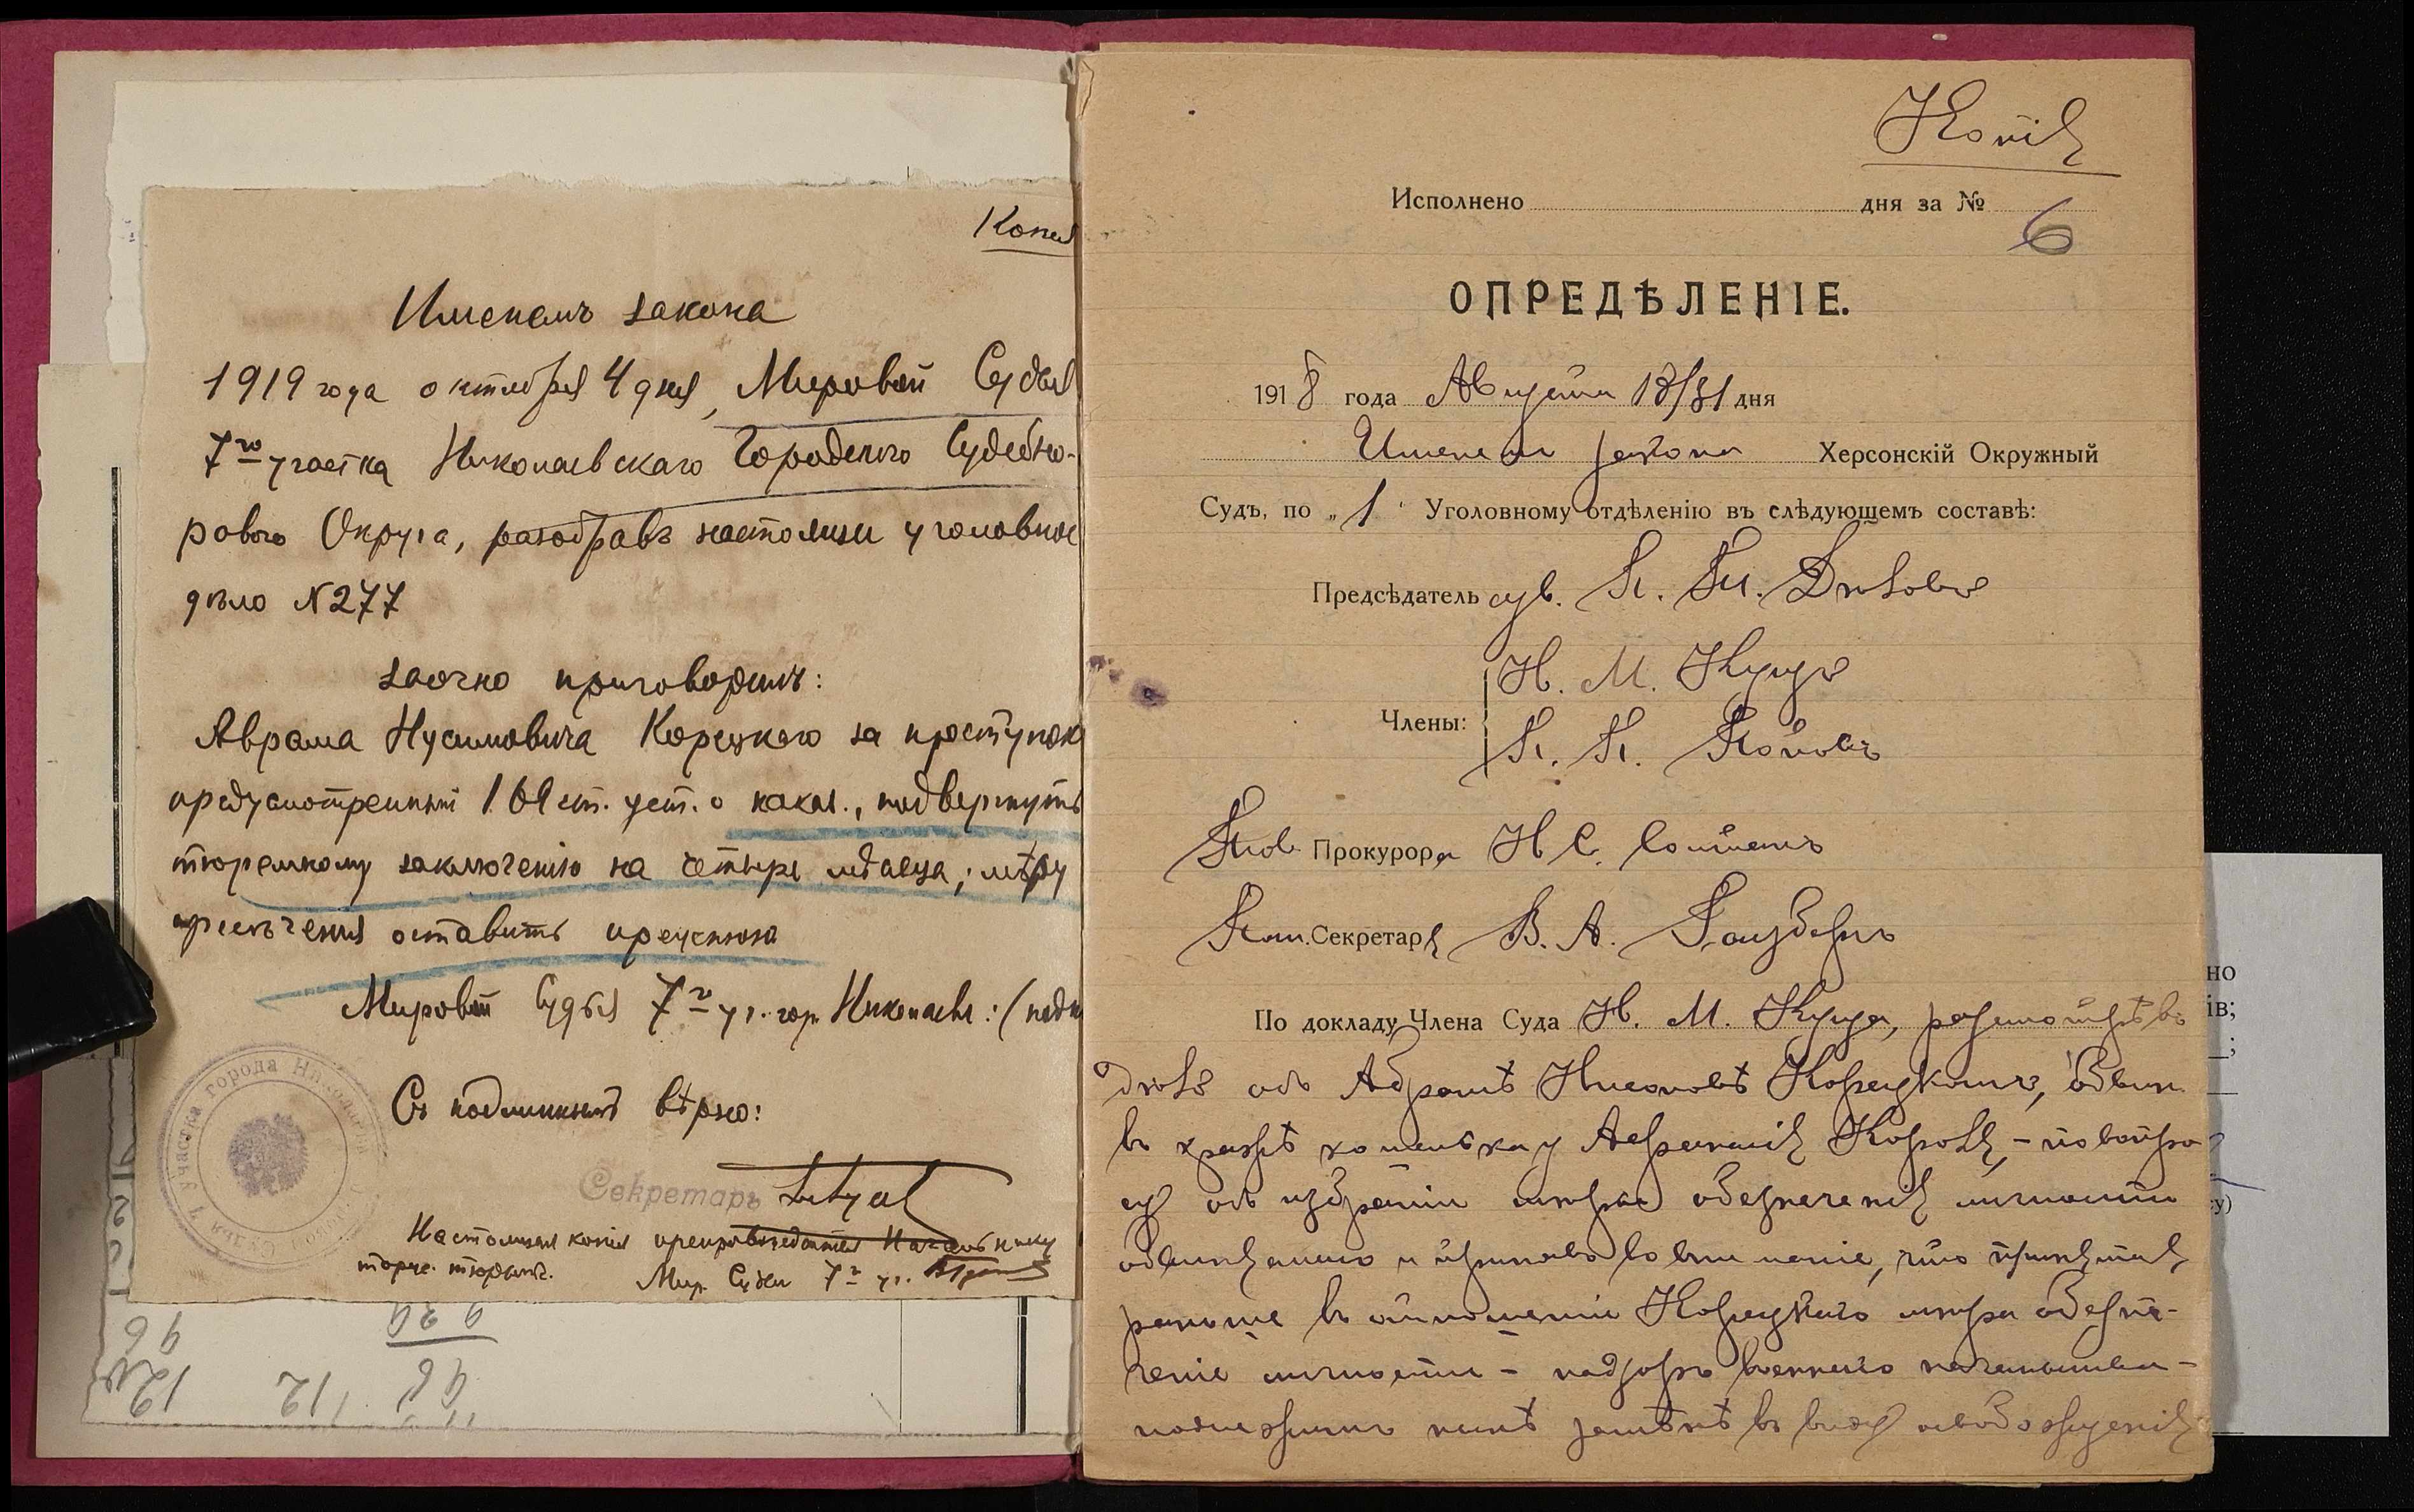 Копия
Именемъ закона
1919 года октября 4 дня, Мировой Судья
7го участка Николаевскаго Городского Судебно-
рового Округа, разобравъ настоящее уголовное
дѣло N 277
заочно приговорилъ:
Аврама Нусимовича Корецкаго за проступокъ
предусмотренный 169 ст. уст. о наказ., подвергнуть
тюремному заключенію на четыре мѣсяца; мѣру
пресѣченія оставить прежнюю
Мировой Судья 7го уч. гор. Николаева: (подп
Съ подлиннымъ вѣрно:
Секретарь
Настоящая копія препровождается Начальнику
тюрьм.
Мир. Судья 7го уч.
участка города Николаева
Судья 7
Копія
Исполнено дня за №
6
ОПРЕДѢЛЕНІЕ.
1918 года Августа 18/31 дня
Именем закона Херсонскій Окружный
Судъ, по „1“ Уголовному отдѣленію въ слѣдующемъ составѣ:
Предсѣдатель
Н. М. Куцъ
Члены:
П. П. Поповъ
Тов. Прокурора Н. С.
Пом. Секретаря В. А.
По докладу Члена Суда Н. М. Куца, разсмотрѣвъ
дѣло объ Абрамѣ Корецкомъ, обвин.
въ кражѣ кошелька у Коровя, – по вопро
су объ избраніи мѣры обезпеченія личности
обвиняемаго и принявъ во вниманіе, что принятая
раньше въ отношеніи Корецкаго мѣра обезпе-
ченія личности – надзоръ военнаго начальства –
подлежитъ нынѣ замѣнѣ въ виду освобожденія
но
ів;
;
у)